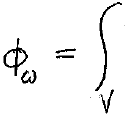 ϕ_ω = ∫_V